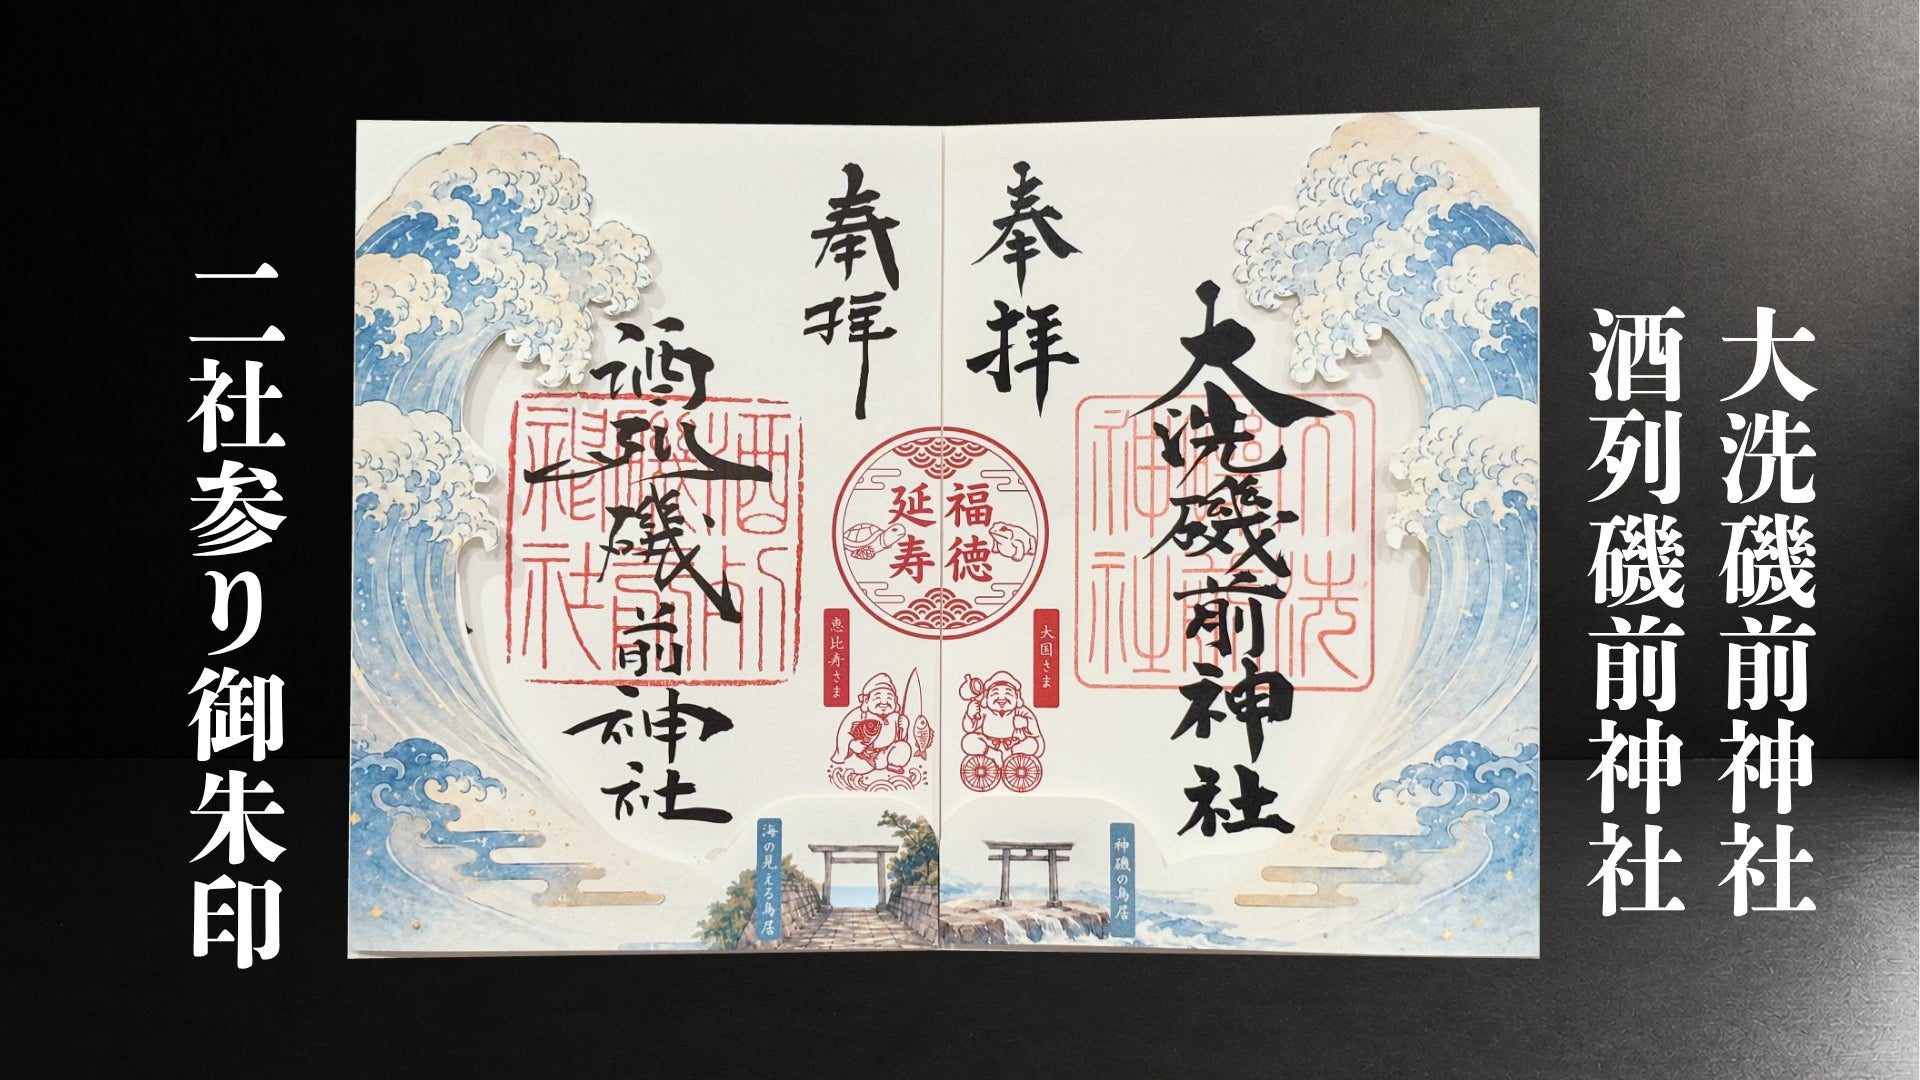 大洗磯前神社
酒列磯前神社
奉拝
大洗磯前神社
大洗
磯前
神社
福徳
延寿
大国さま
神磯の鳥居
奉拝
酒列磯前神社
酒列
磯前
神社
恵比寿さま
海の見える鳥居
二社参り御朱印